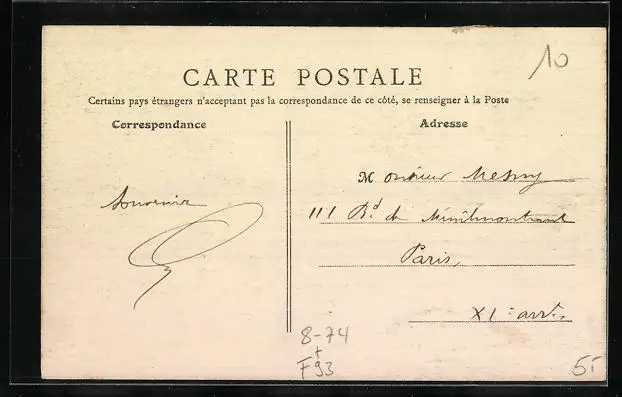 10
CARTE POSTALE
Certains pays étrangers n'acceptant pas la correspondance de ce côté, se renseigner à la Poste
Correspondance
Adresse
Monsieur Mesny
Souvenir
111 Bd de Ménilmontant
Paris,
XIe arrt.
8-74
+
F93